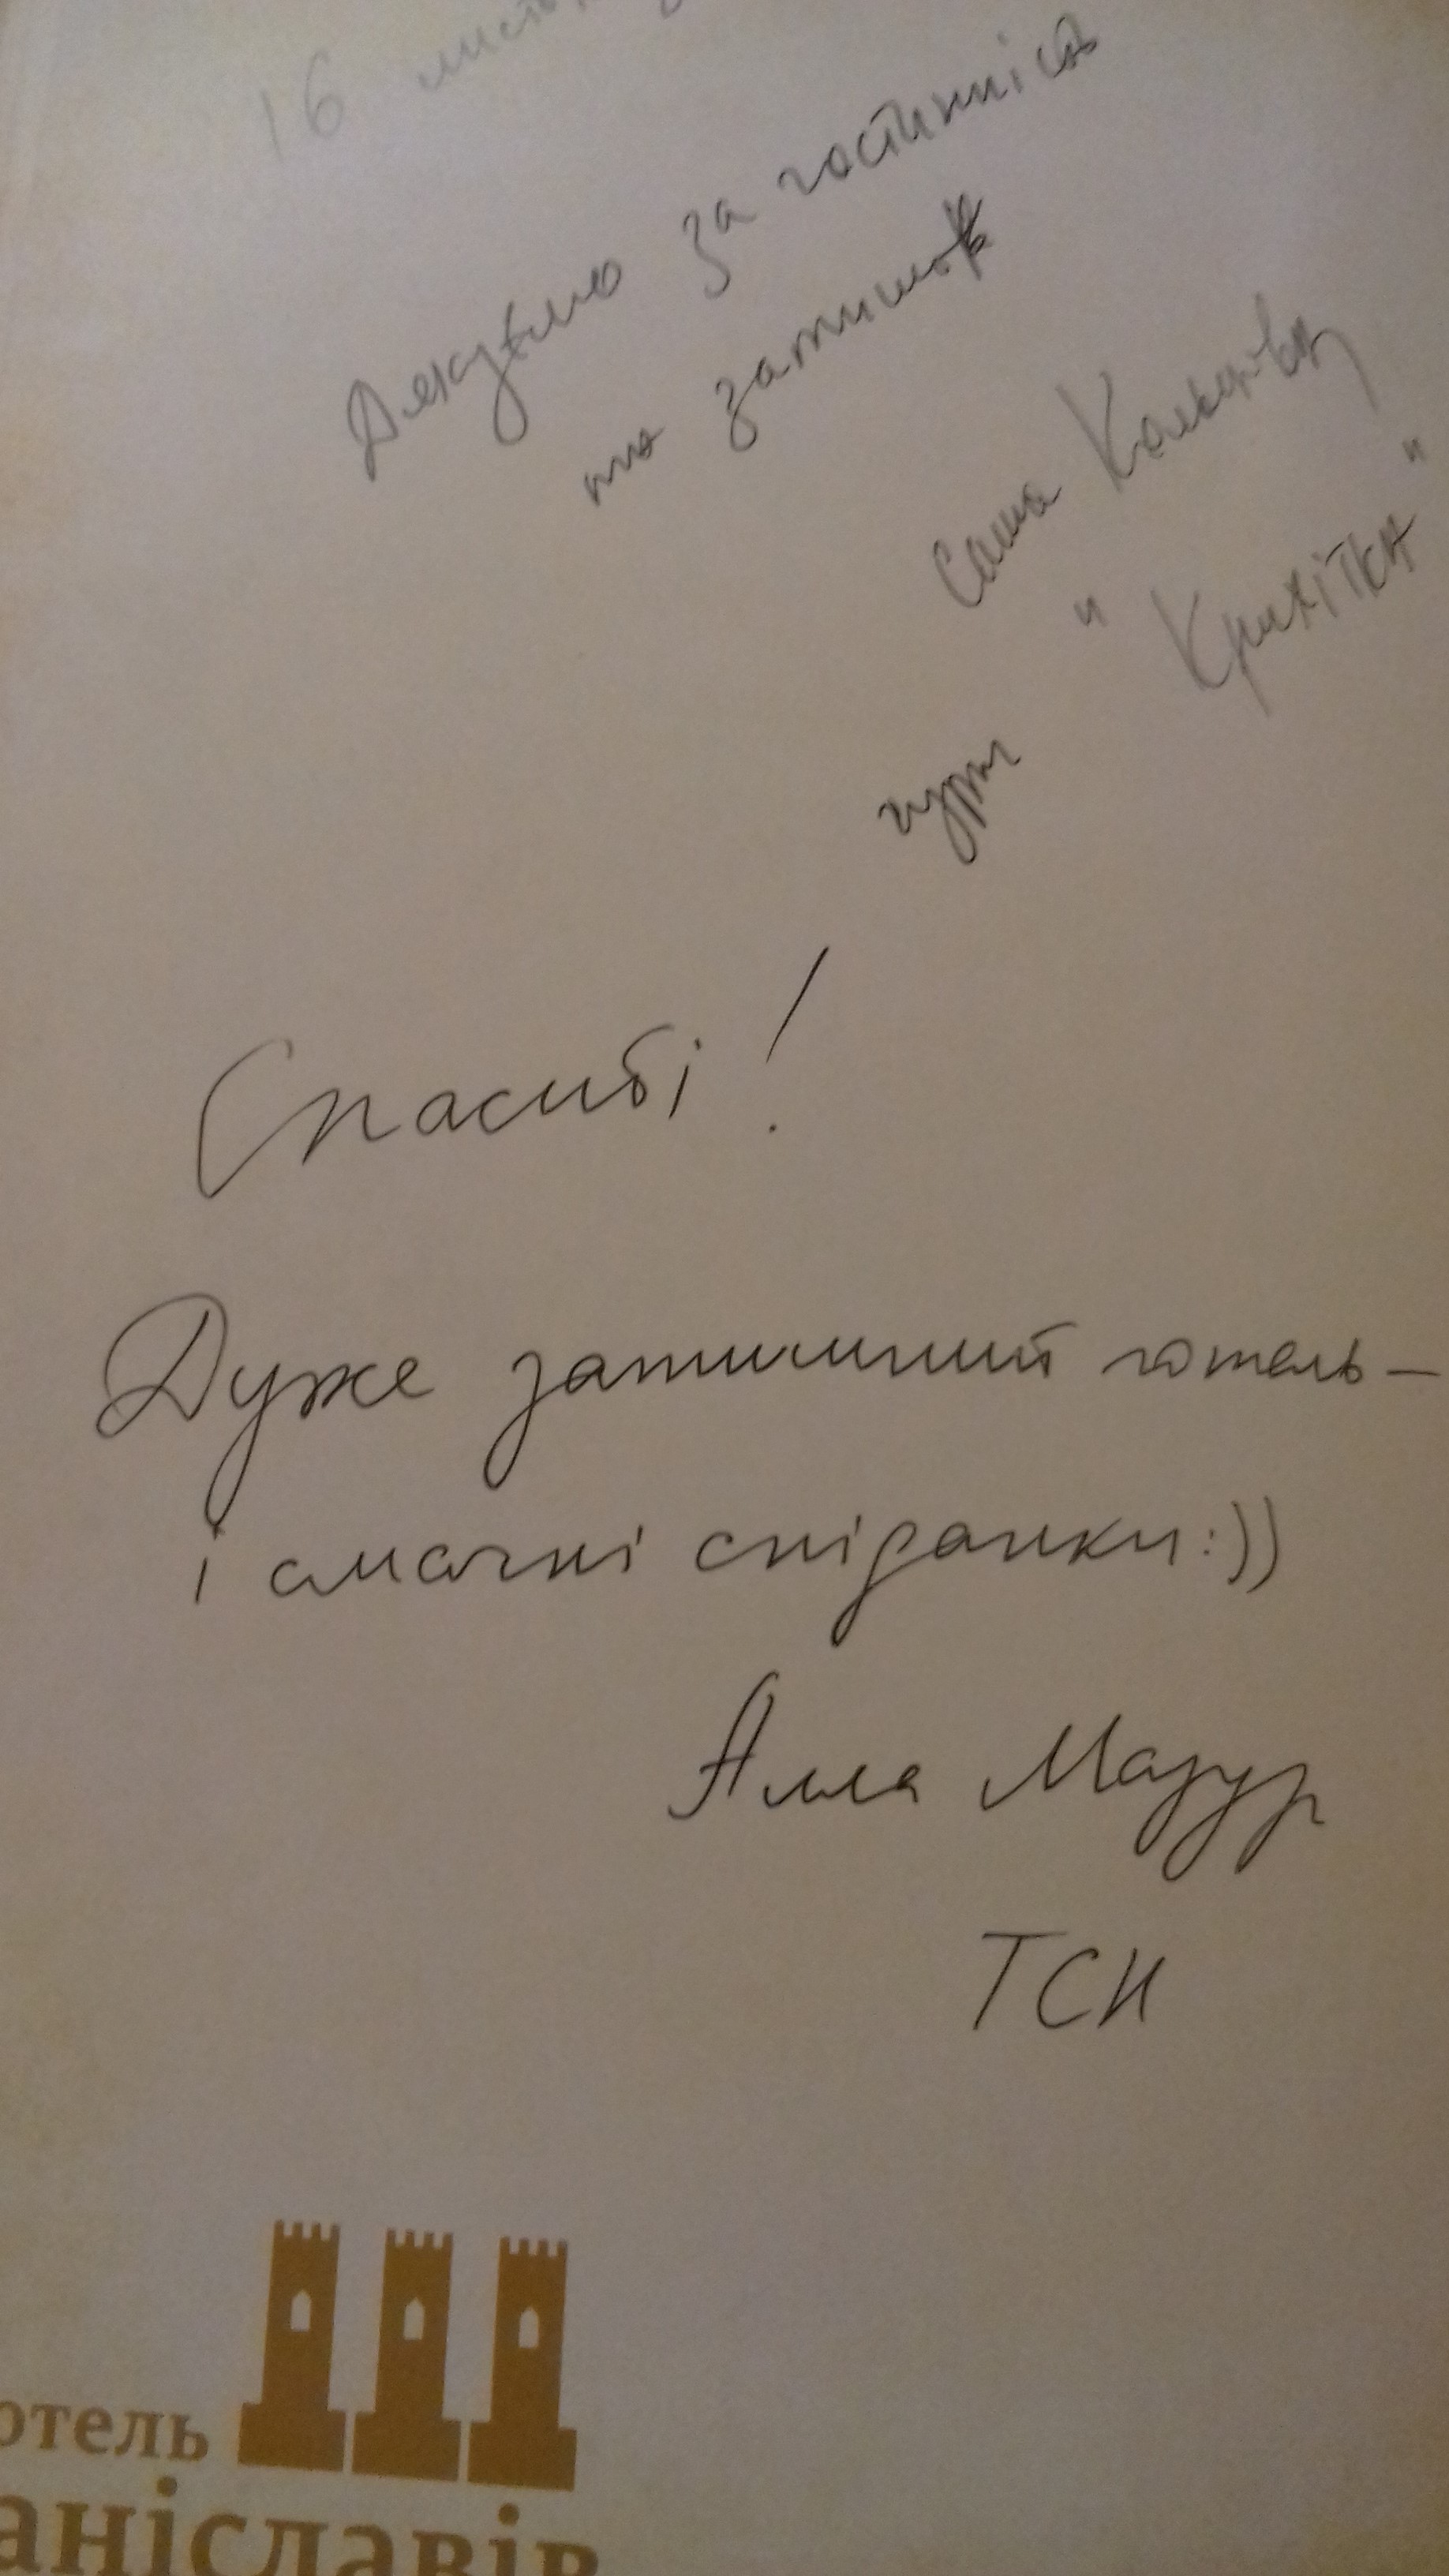 16
Дякуємо за гостинність
та затишок
Саша Кольцова
гурт "Крихітка"
Спасибі!
Дуже затишний готель–
і смачні сніданки:))
Алла Мазур
ТСН
отель
аніславів